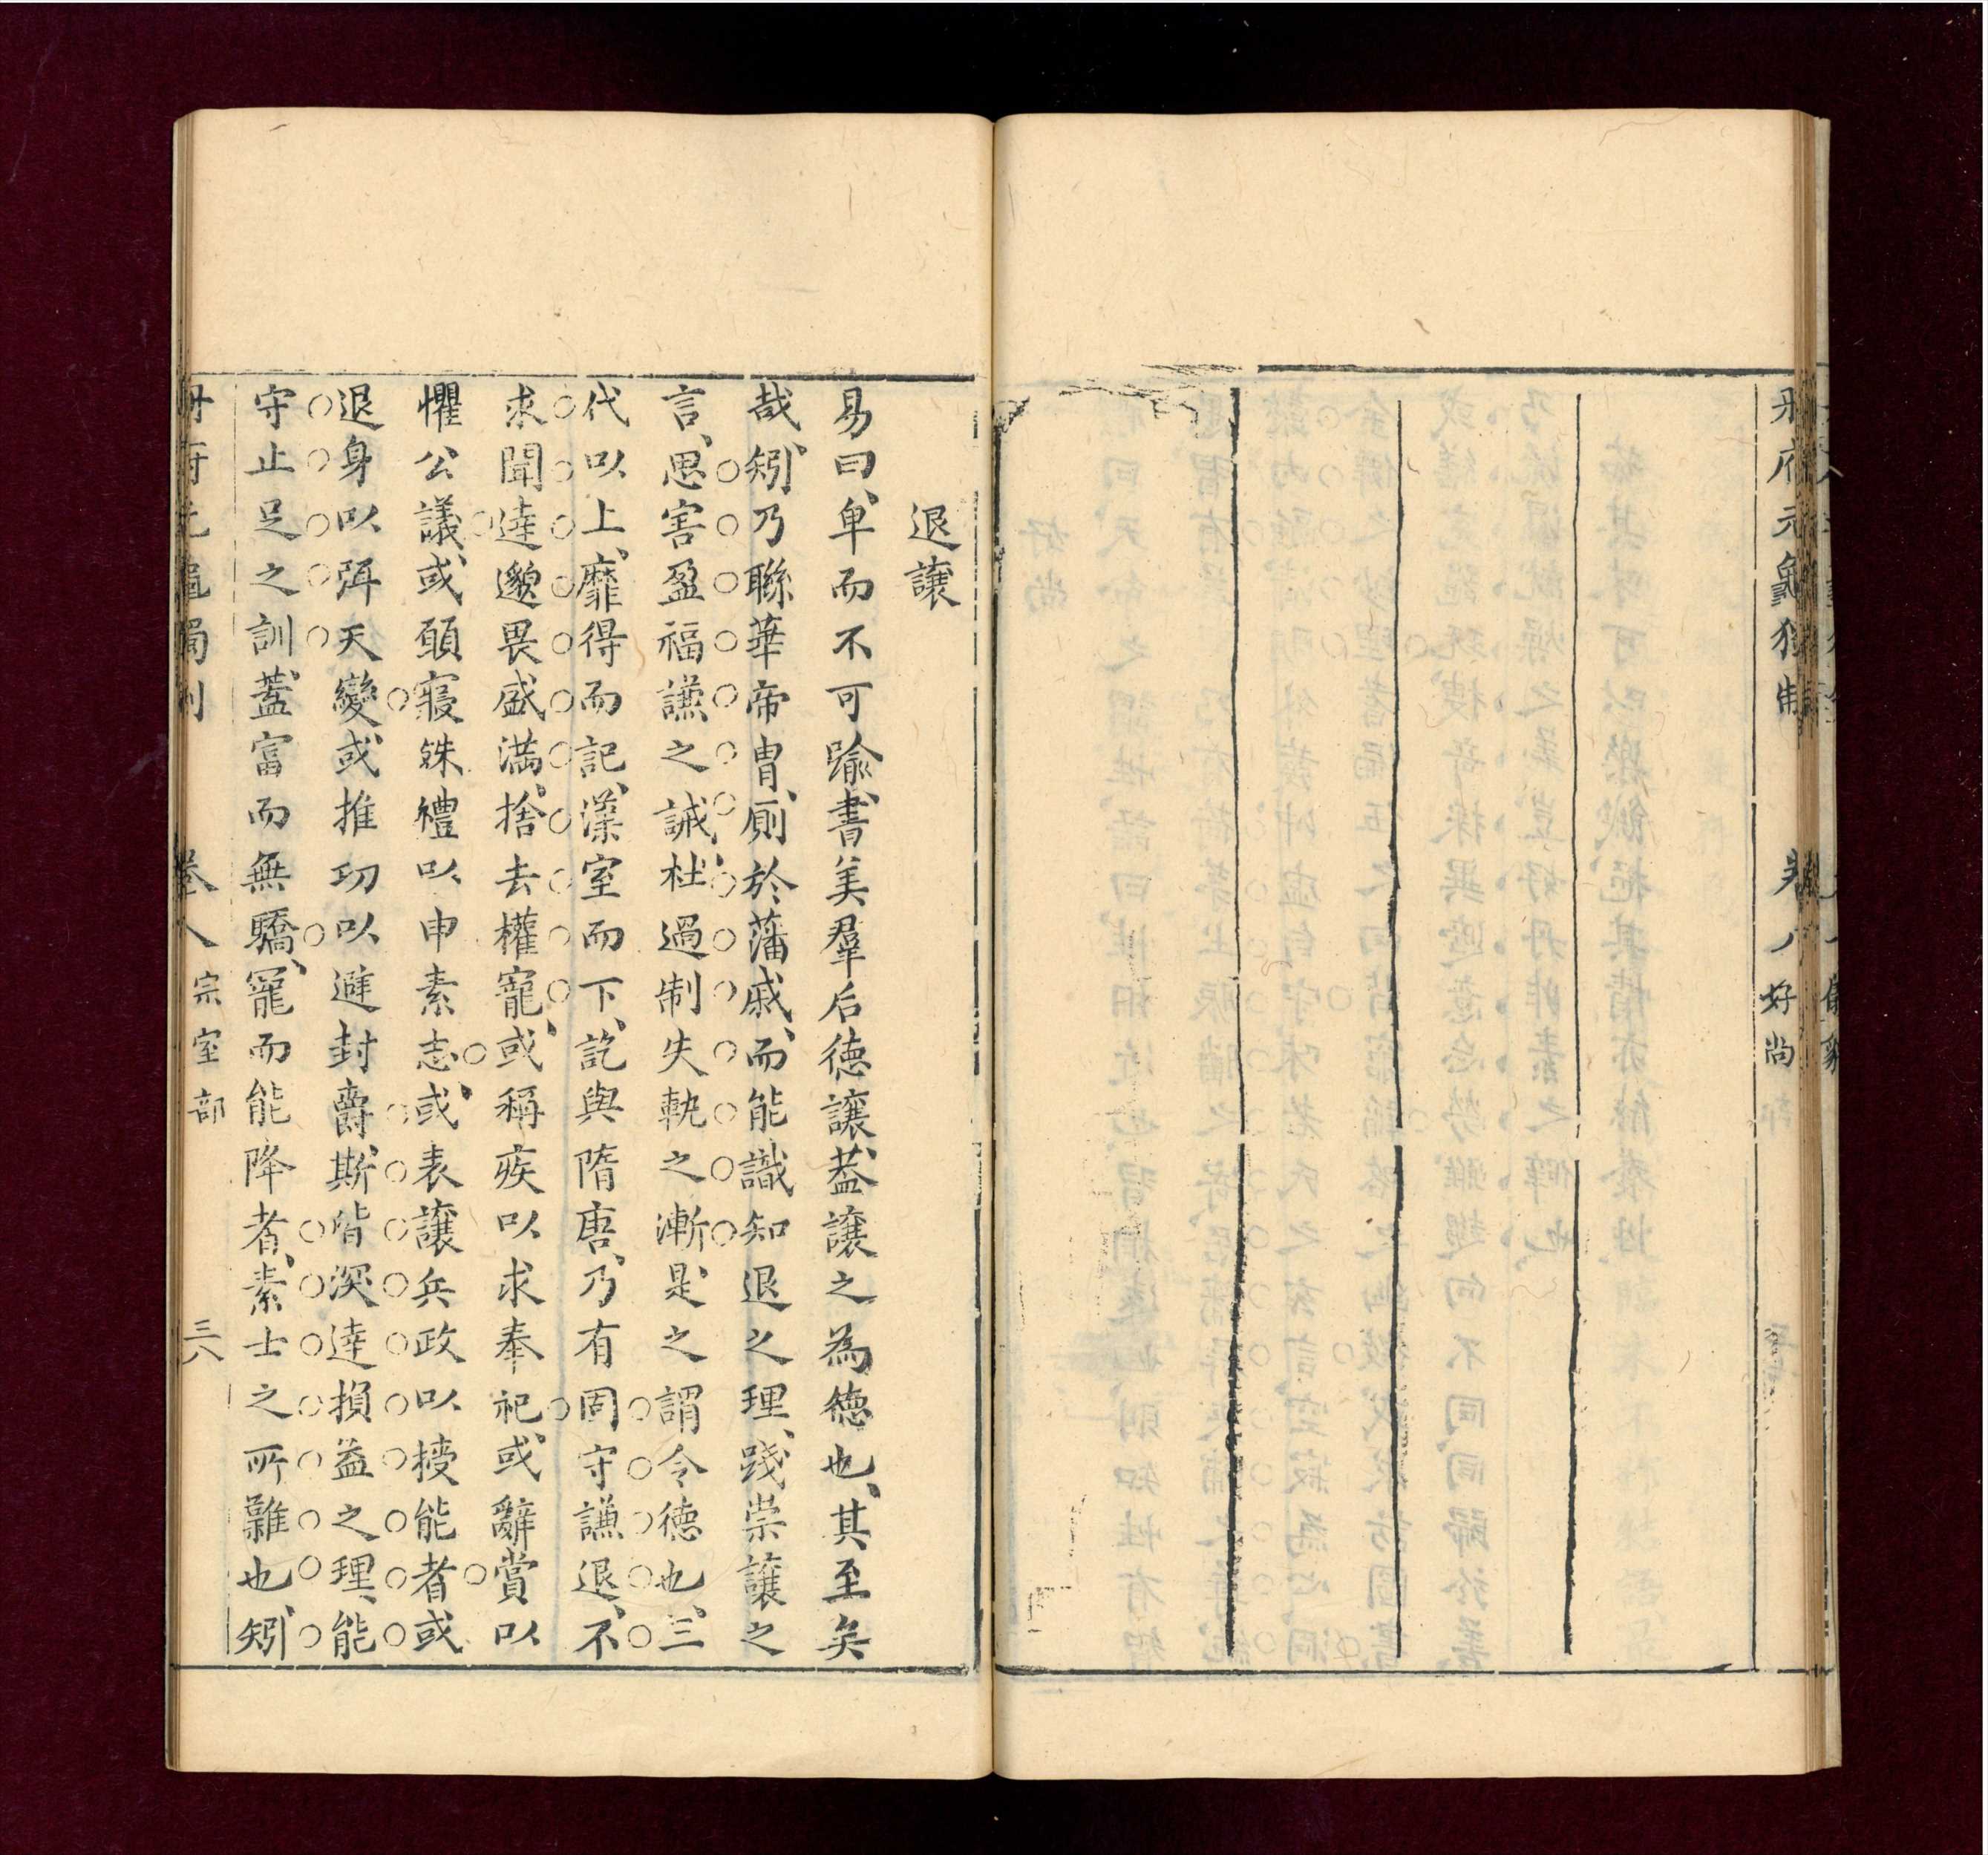 册府元龜獨制
卷八
好尚
退讓
易曰、卑而不可踰、書美羣后德讓、葢讓之為德也、其至矣
哉、矧乃聯華帝冑、廁於藩戚、而能識知退之理、踐崇讓之
言、思害盈福謙之誡、杜過制失軌之漸、是之謂令德也、三
代以上、靡得而記、漢室而下、訖與隋唐、乃有固守謙退、不
求聞達、邈畏盛滿、捨去權寵、或稱疾以求奉祀、或辭賞以
懼公議、或願寢殊禮以申素志、或表讓兵政以授能者、或
退身以弭天變、或推功以避封爵、斯皆深達損益之理、能
守止足之訓、蓋富而無驕、寵而能降者、素士之所難也、矧
册府元龜獨制
卷八
宗室部
三八